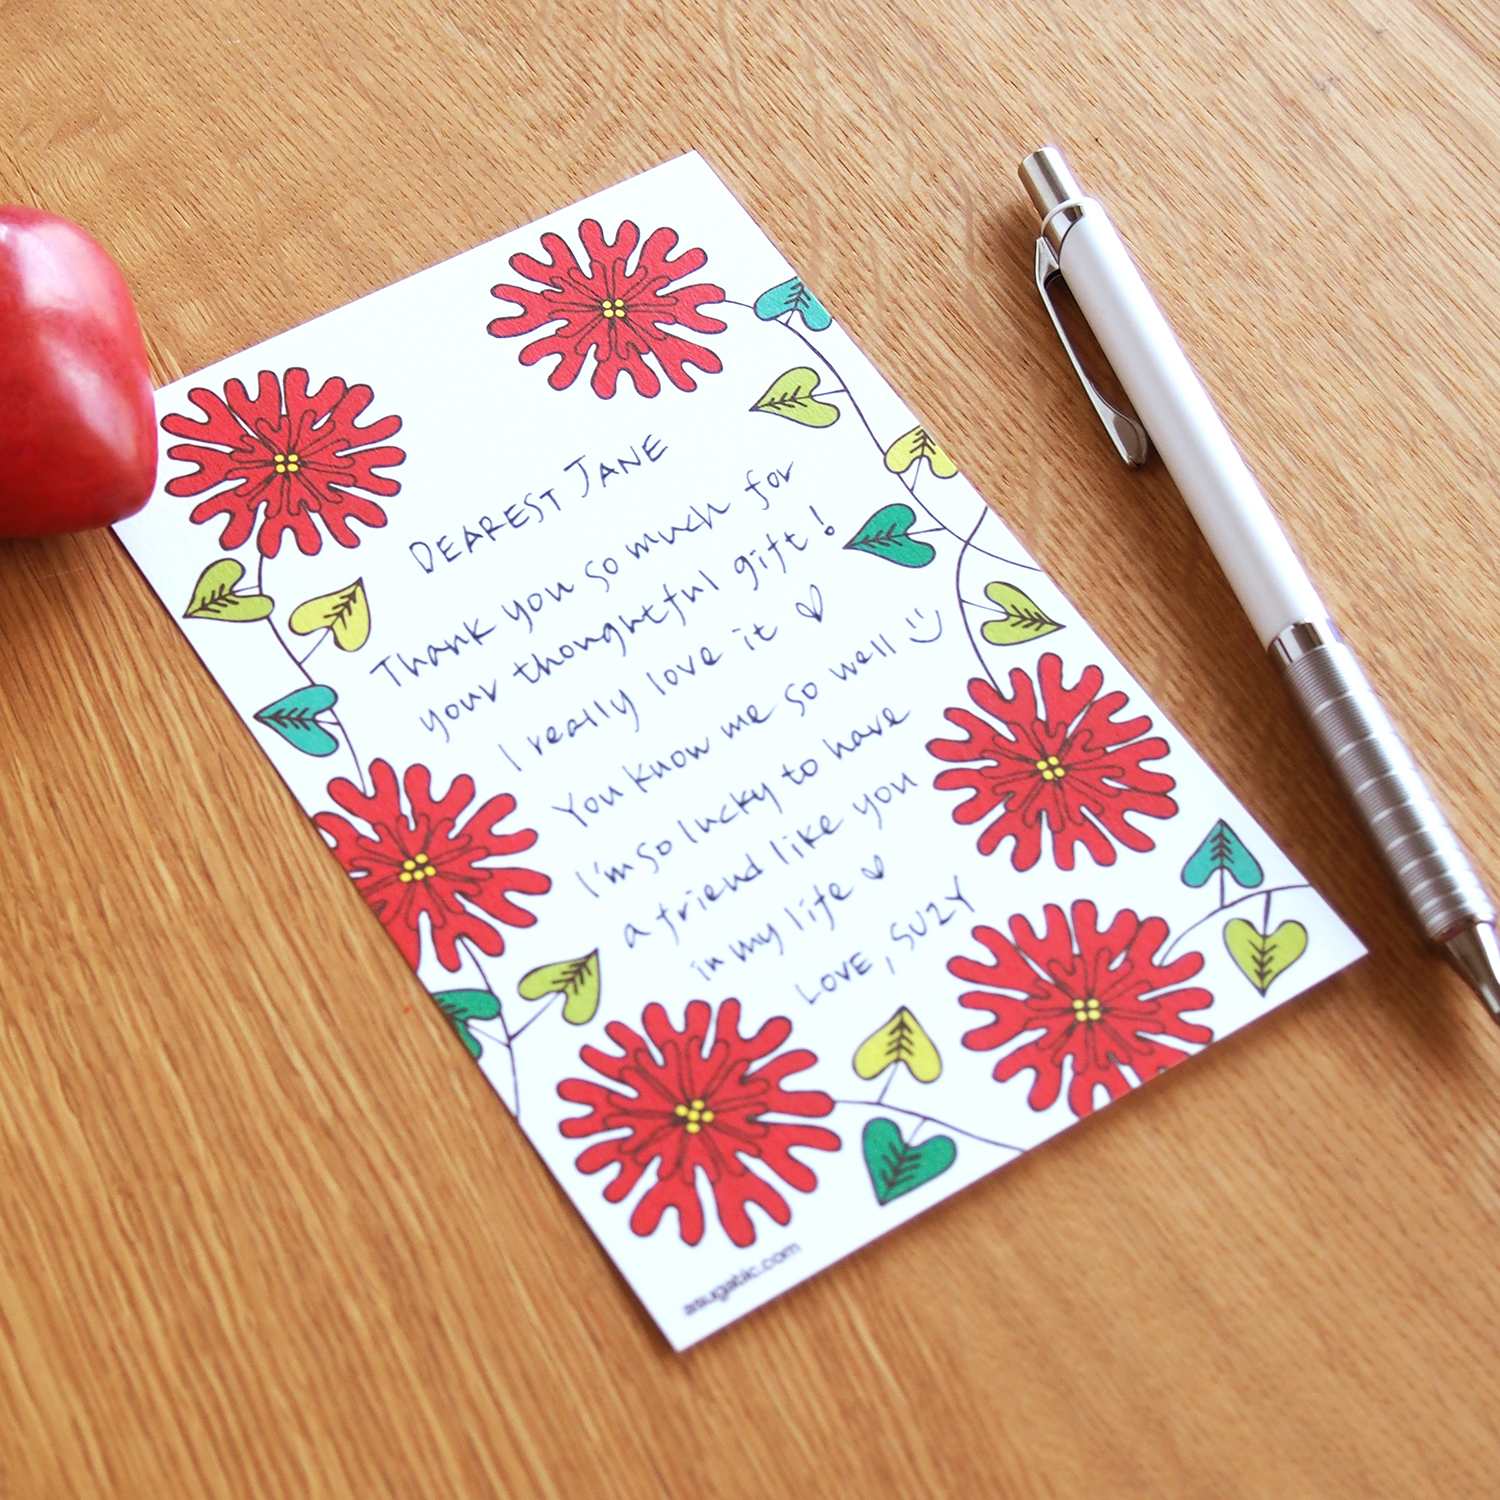 DEAREST JANE
Thank you so much for
your thoughtful gift!
I really love it ♡
You know me so well :)
I'm so lucky to have
a friend like you
in my life ♡
LOVE, SUZY
asugatic.com